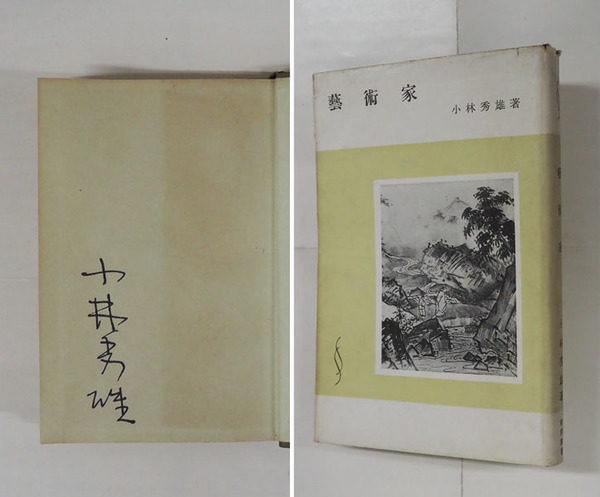 小林秀雄
藝術家
小林秀雄著